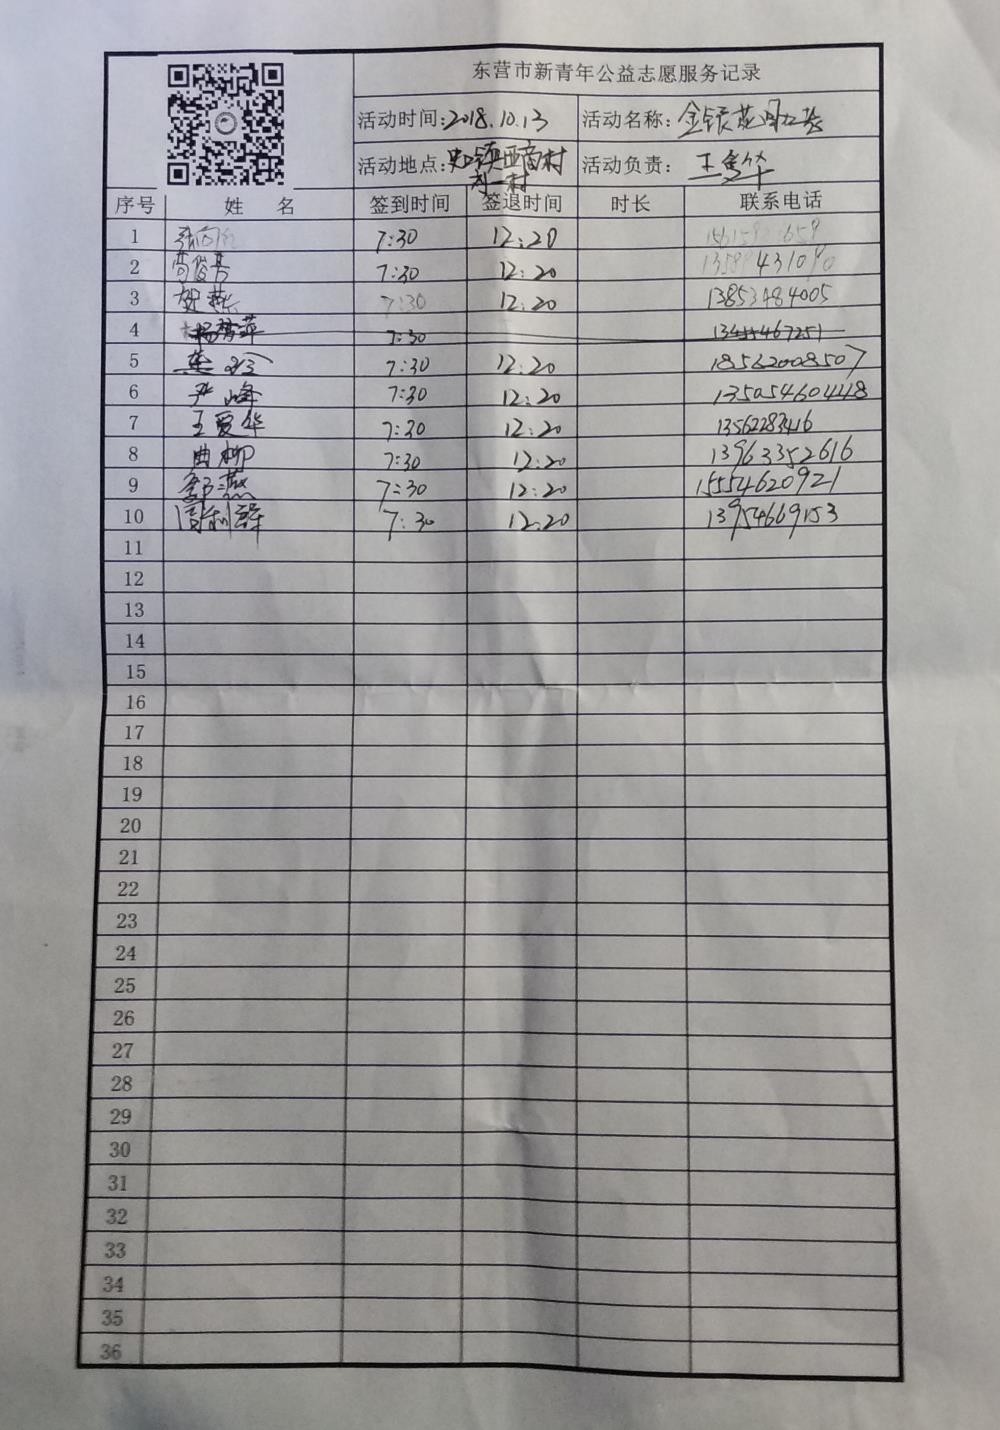 东营市新青年公益志愿服务记录
活动时间:2018.10.13 活动名称:金银花
活动地点: 活动负责: 王爱华
序号 姓 名 签到时间 签退时间 时长 联系电话
1 7:30 12:20
2 7:30 12:20
3 贺燕 7:30 12:20 13853484005
4 杨梦萍 7:30 13455467251
5 7:30 12:20 18562008507
6 尹峰 7:30 12:20 135054604448
7 王爱华 7:30 12:20 13562283416
8 曲柳 7:30 12:20 13963352616
9 7:30 12:20 15554620921
10 7:30 12:20 13954669153
11
12
13
14
15
16
17
18
19
20
21
22
23
24
25
26
27
28
29
30
31
32
33
34
35
36